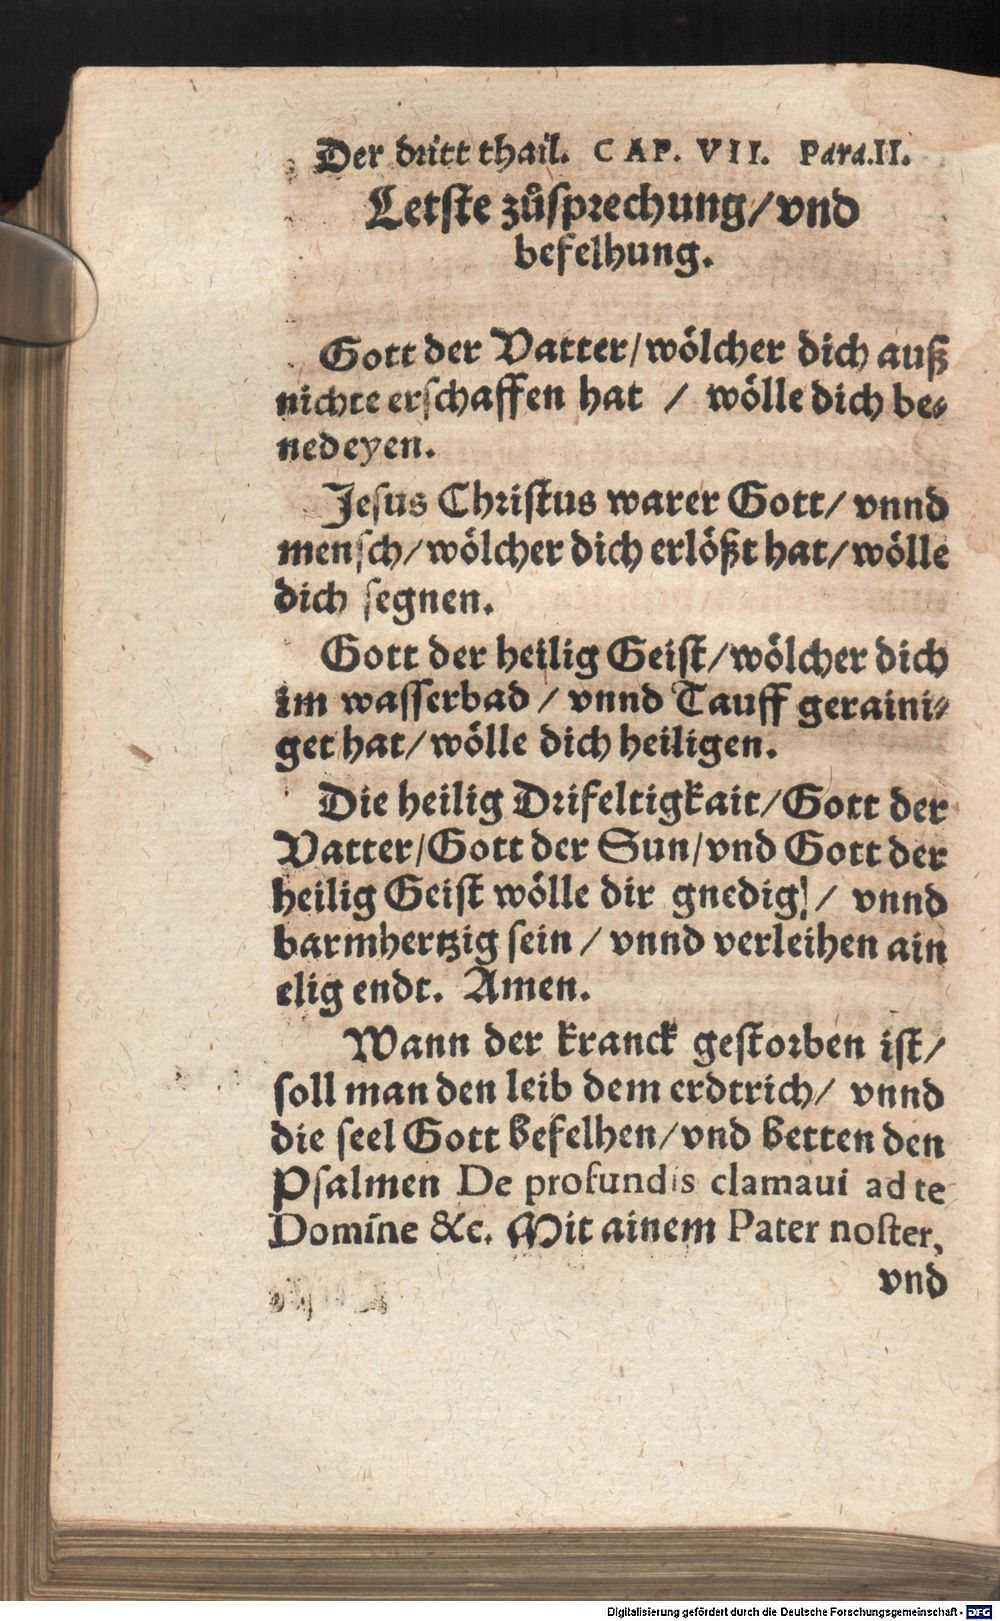 Der dritt thail. CAP. VII. Para. II.
Letste zůsprechung/vnd
befelhung.
Gott der Vatter/wölcher dich auß
nichte erschaffen hat / wölle dich be⸗
nedeyen.
Jesus Christus warer Gott/ vnnd
mensch/wölcher dich erlößt hat/wölle
dich segnen.
Gott der heilig Geist/wölcher dich
im wasserbad / vnnd Tauff geraini⸗
get hat/wölle dich heiligen.
Die heilig Drifeltigkait/Gott der
Vatter/Gott der Sun/vnd Gott der
heilig Geist wölle dir gnedig / vnnd
barmhertzig sein / vnnd verleihen ain
elig endt. Amen.
Wann der kranck gestorben ist/
soll man den leib dem erdtrich/ vnnd
die seel Gott befelhen/vnd betten den
Psalmen De profundis clamaui ad te
Domine &c. Mit ainem Pater noster,
vnd
Digitalisierung gefördert durch die Deutsche Forschungsgemeinschaft - DFG